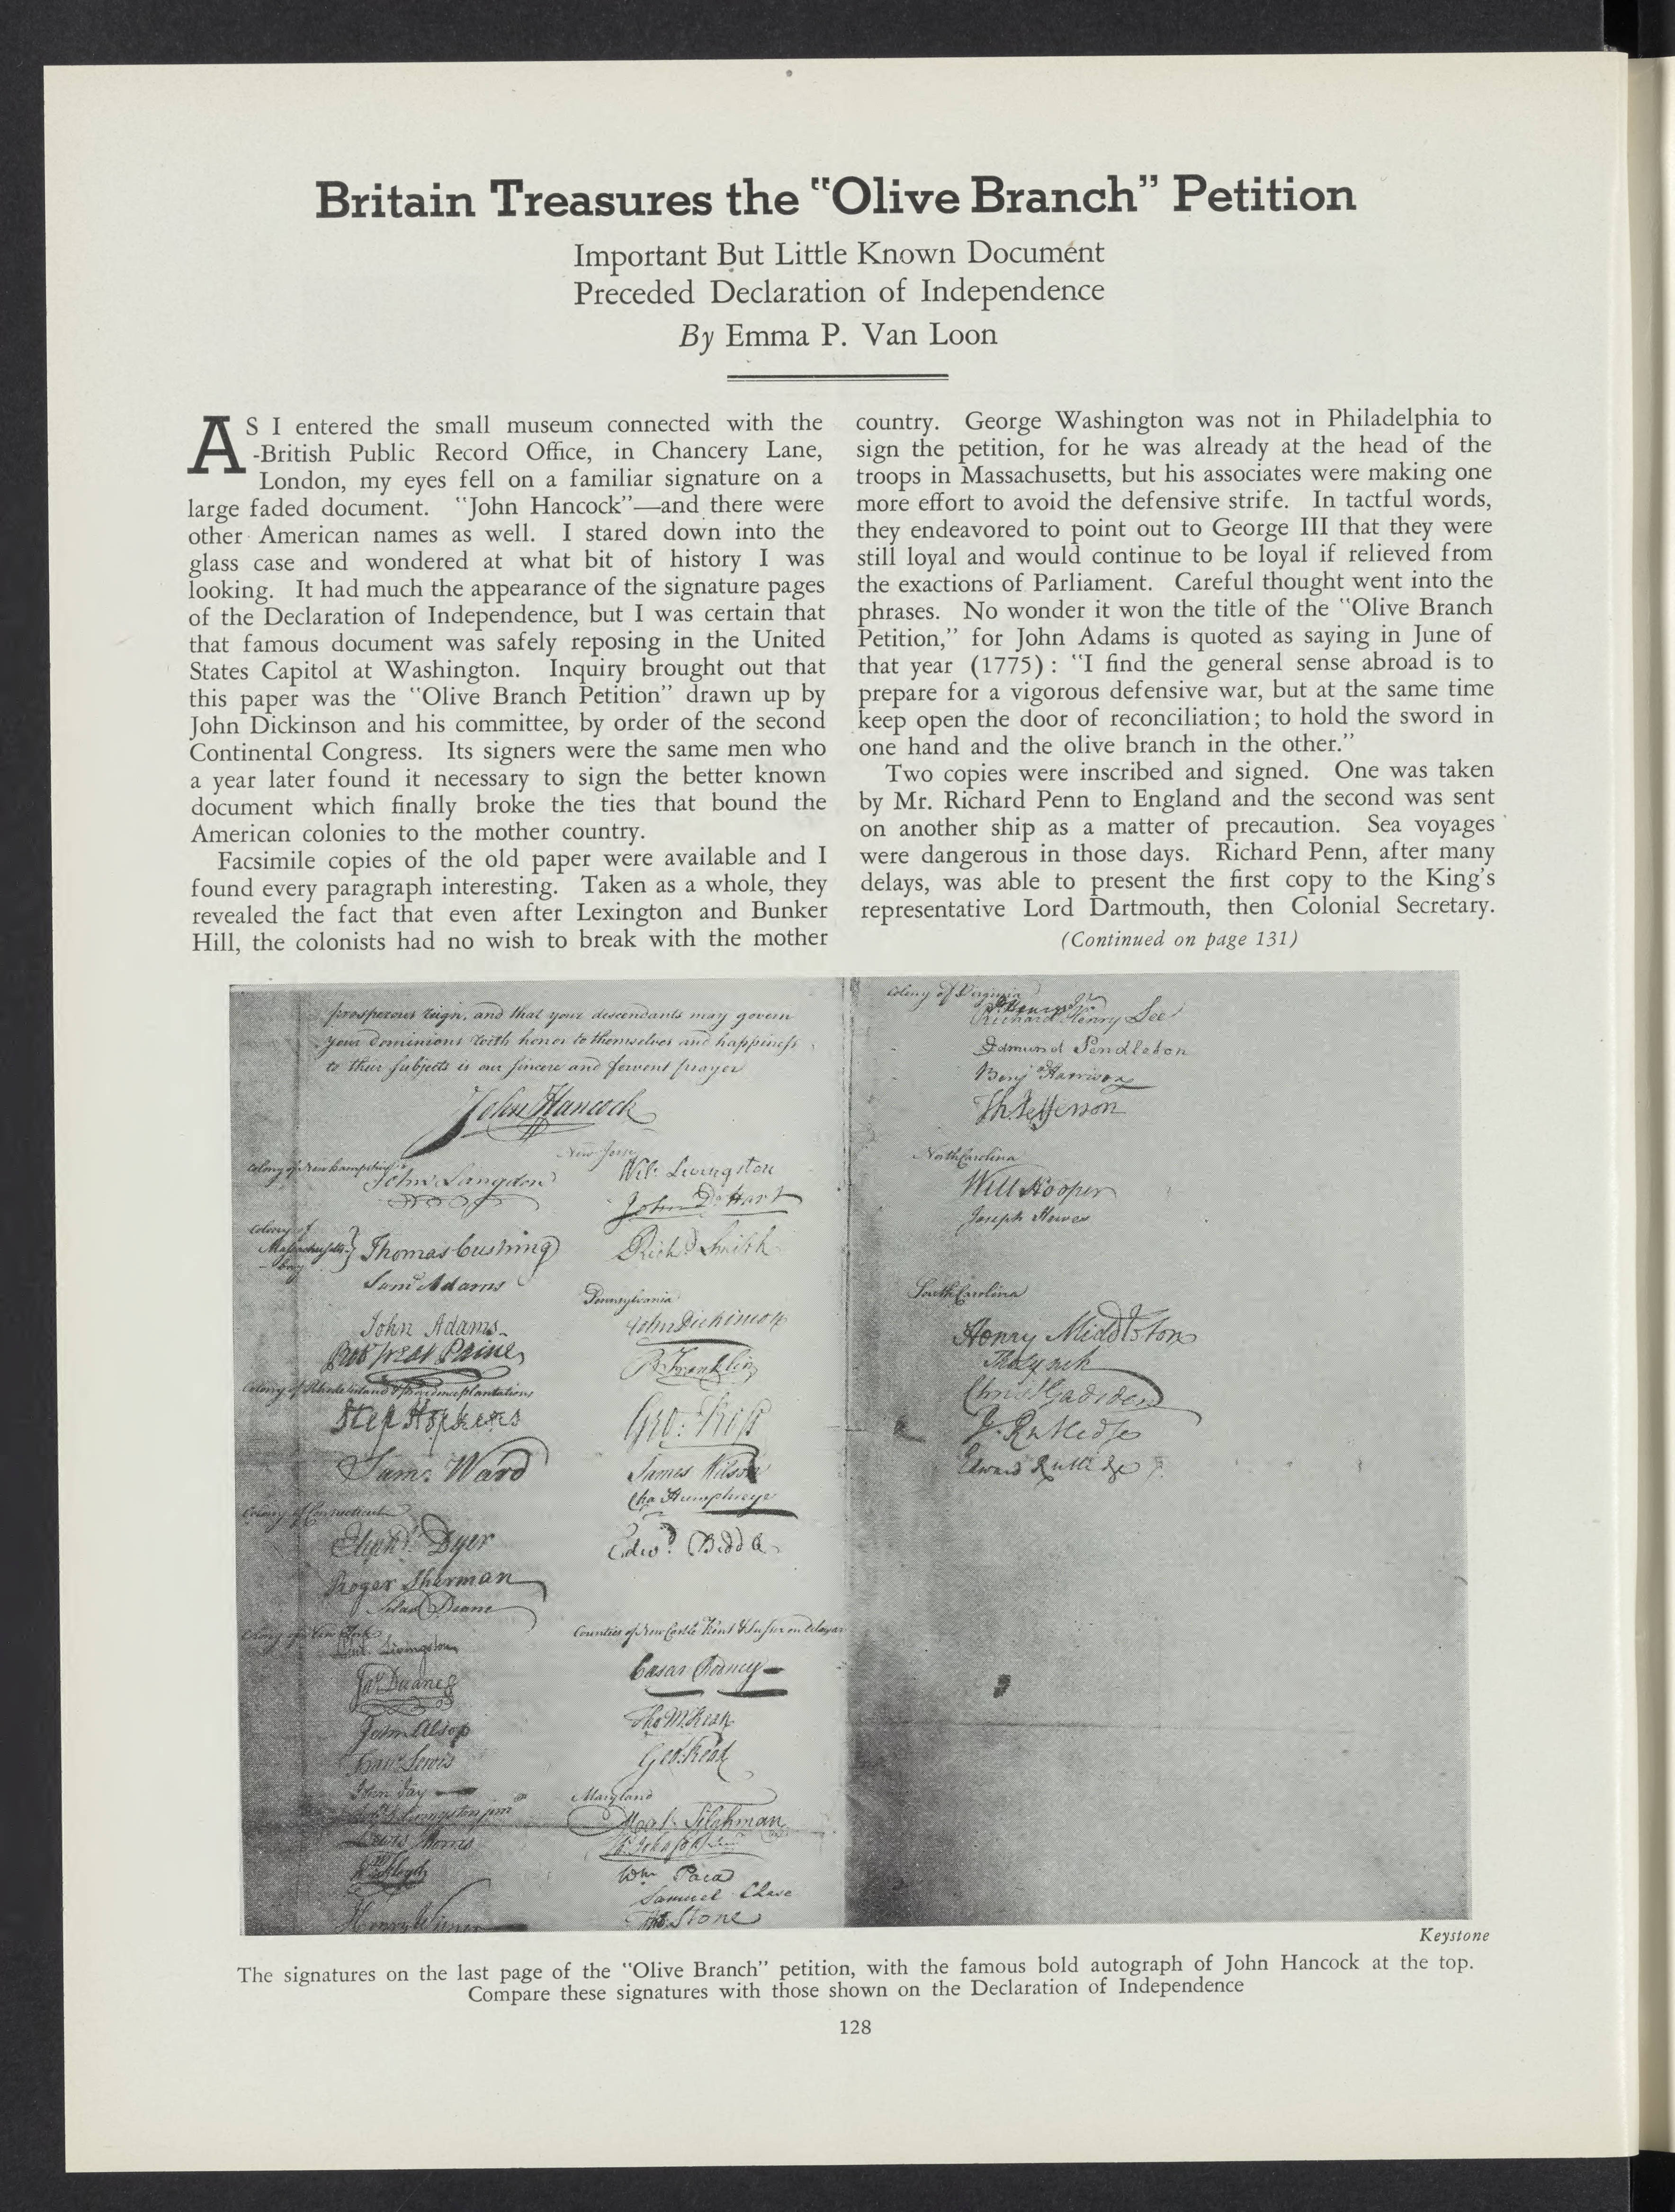 Britain Treasures the "Olive Branch" Petition
Important But Little Known Document
Preceded Declaration of Independence
By Emma P. Van Loon
AS I entered the small museum connected with the
-British Public Record Office, in Chancery Lane,
London, my eyes fell on a familiar signature on a
large faded document. "John Hancock"—and there were
other American names as well. I stared down into the
glass case and wondered at what bit of history I was
looking. It had much the appearance of the signature pages
of the Declaration of Independence, but I was certain that
that famous document was safely reposing in the United
States Capitol at Washington. Inquiry brought out that
this paper was the "Olive Branch Petition" drawn up by
John Dickinson and his committee, by order of the second
Continental Congress. Its signers were the same men who
a year later found it necessary to sign the better known
document which finally broke the ties that bound the
American colonies to the mother country.
Facsimile copies of the old paper were available and I
found every paragraph interesting. Taken as a whole, they
revealed the fact that even after Lexington and Bunker
Hill, the colonists had no wish to break with the mother
country. George Washington was not in Philadelphia to
sign the petition, for he was already at the head of the
troops in Massachusetts, but his associates were making one
more effort to avoid the defensive strife. In tactful words,
they endeavored to point out to George III that they were
still loyal and would continue to be loyal if relieved from
the exactions of Parliament. Careful thought went into the
phrases. No wonder it won the title of the "Olive Branch
Petition," for John Adams is quoted as saying in June of
that year (1775): "I find the general sense abroad is to
prepare for a vigorous defensive war, but at the same time
keep open the door of reconciliation; to hold the sword in
one hand and the olive branch in the other."
Two copies were inscribed and signed. One was taken
by Mr. Richard Penn to England and the second was sent
on another ship as a matter of precaution. Sea voyages
were dangerous in those days. Richard Penn, after many
delays, was able to present the first copy to the King's
representative Lord Dartmouth, then Colonial Secretary.
(Continued on page 131)
prosperous reign, and that your descendants may govern
your dominions with honor to themselves and happiness
to their subjects is our sincere and fervent prayer
John Hancock
Colony of New hampshire
John Langdon
Colony of
Massachusetts
bay
Thomas Cushing
Saml Adams
John Adams
Robt Treat Paine
Step Hopkins
Sam: Ward
Colony of Connecticut
Elipht Dyer
Roger Sherman
Silas Deane
Colony of New York
Phil. Livingston
Jas Duane
John Alsop
Frans Lewis
John Jay
Robt R Livingston junr
Lewis Morris
Wm Floyd
Henry Wisner
New Jersey
Wil: Livingston
John De Hart
Richd Smith
Pennsylvania
John Dickinson
B Franklin
Geo: Ross
James Wilson
Cha Humphreys
Edwd Biddle
Counties of New Castle Kent & Sussex on Delaware
Caesar Rodney
Tho M:Kean
Geo: Read
Maryland
Mat: Tilghman
Ths Johnson Junr
Wm Paca
Samuel Chase
Thos Stone
Colony of Virginia
P. Henry Jr
Richard Henry Lee
Edmund Pendleton
Benj Harrison
Th: Jefferson
North Carolina
Will Hooper
Joseph Hewes
South Carolina
Henry Middleton
Tho Lynch
Christ Gadsden
J. Rutledge
Edward Rutledge
Keystone
The signatures on the last page of the "Olive Branch" petition, with the famous bold autograph of John Hancock at the top.
Compare these signatures with those shown on the Declaration of Independence
128